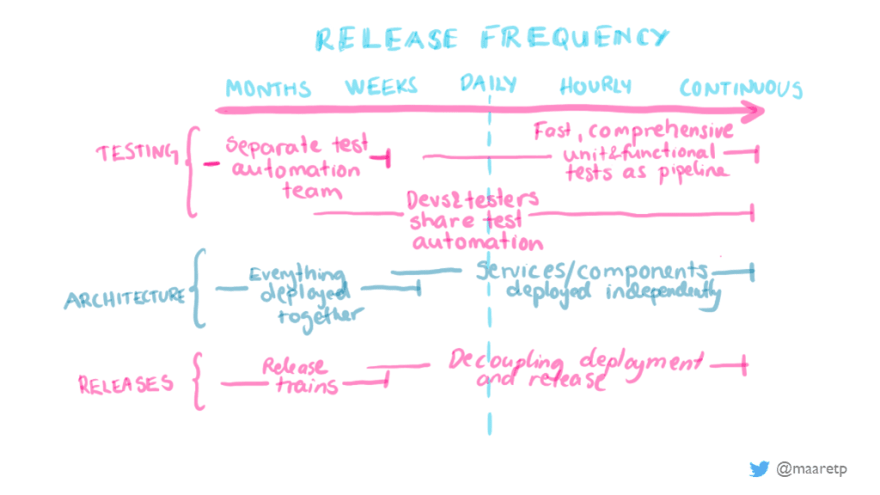 RELEASE FREQUENCY
MONTHS WEEKS DAILY HOURLY CONTINUOUS
TESTING
Separate test
automation
team
Fast, comprehensive
unit&functional
tests as pipeline
Devs&testers
share test
automation
ARCHITECTURE
Everything
deployed
together
Services/components
deployed independently
RELEASES
Release
trains
Decoupling deployment
and release
@maaretp